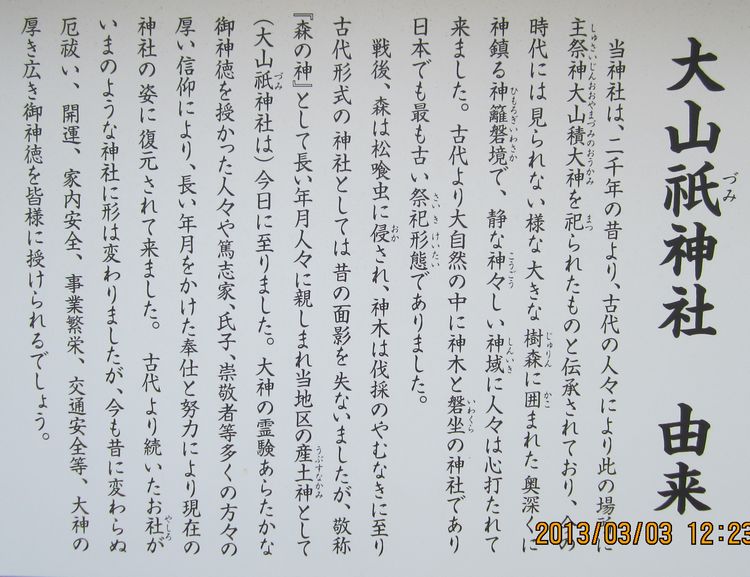 大山祇神社 由来
当神社は、二千年の昔より、古代の人々により此の場所に
主祭神大山積大神を祀られたものと伝承されており、今の
時代には見られない様な大きな樹森に囲まれた奥深くに
神鎮る神籬磐境で、静な神々しい神域に人々は心打たれて
来ました。古代より大自然の中に神木と磐坐の神社であり
日本でも最も古い祭祀形態でありました。
戦後、森は松喰虫に侵され、神木は伐採のやむなきに至り
古代形式の神社としては昔の面影を失ないましたが、敬称
『森の神』として長い年月人々に親しまれ当地区の産土神として
(大山祇神社は)今日に至りました。大神の霊験あらたかな
御神徳を授かった人々や篤志家、氏子、崇敬者等多くの方々の
厚い信仰により、長い年月をかけた奉仕と努力により現在の
神社の姿に復元されて来ました。古代より続いたお社が
いまのような神社に形は変わりましたが、今も昔に変わらぬ
厄祓い、開運、家内安全、事業繁栄、交通安全等、大神の
厚き広き御神徳を皆様に授けられるでしょう。
2013/03/03 12:23